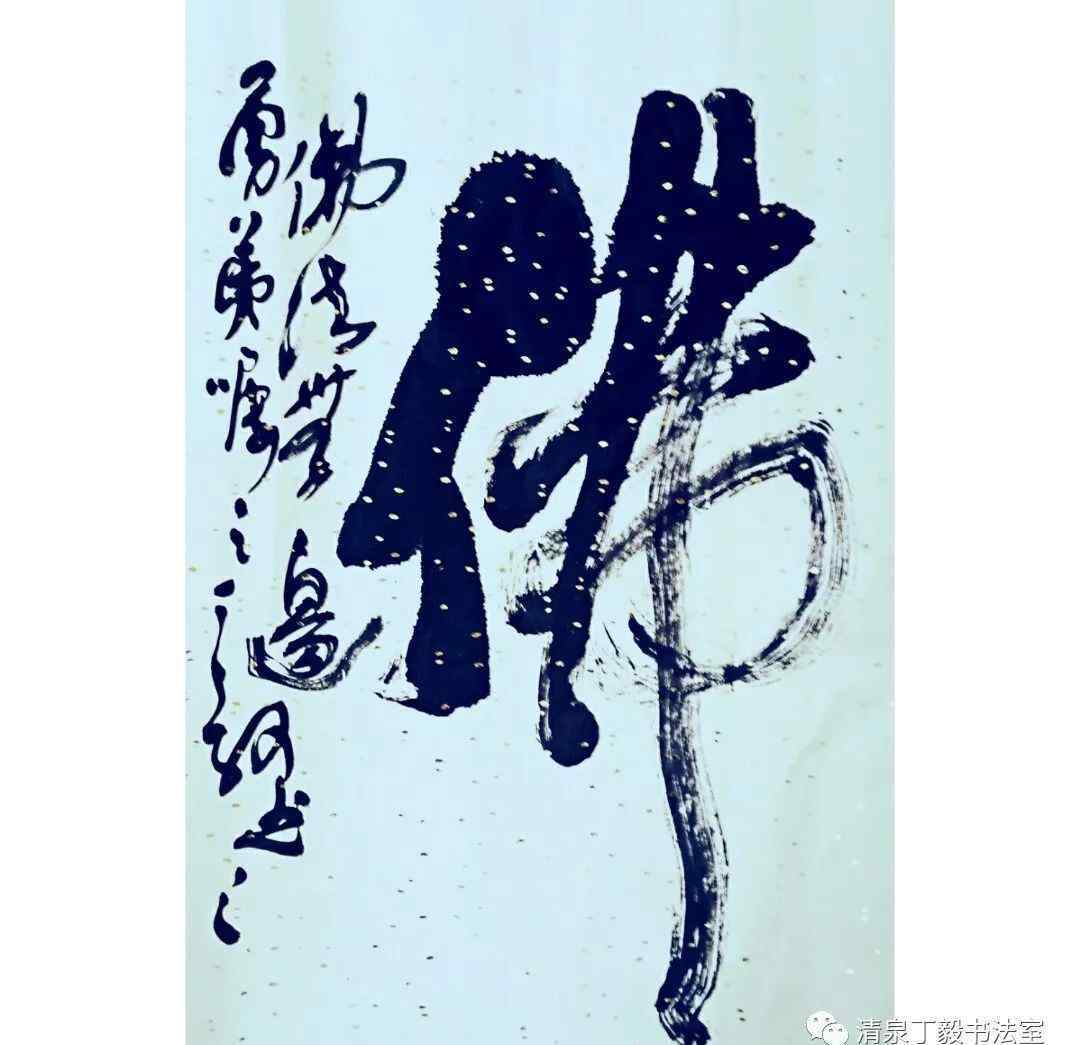 佛
佛法無邊
勇弟嘱之
清泉丁毅书法室